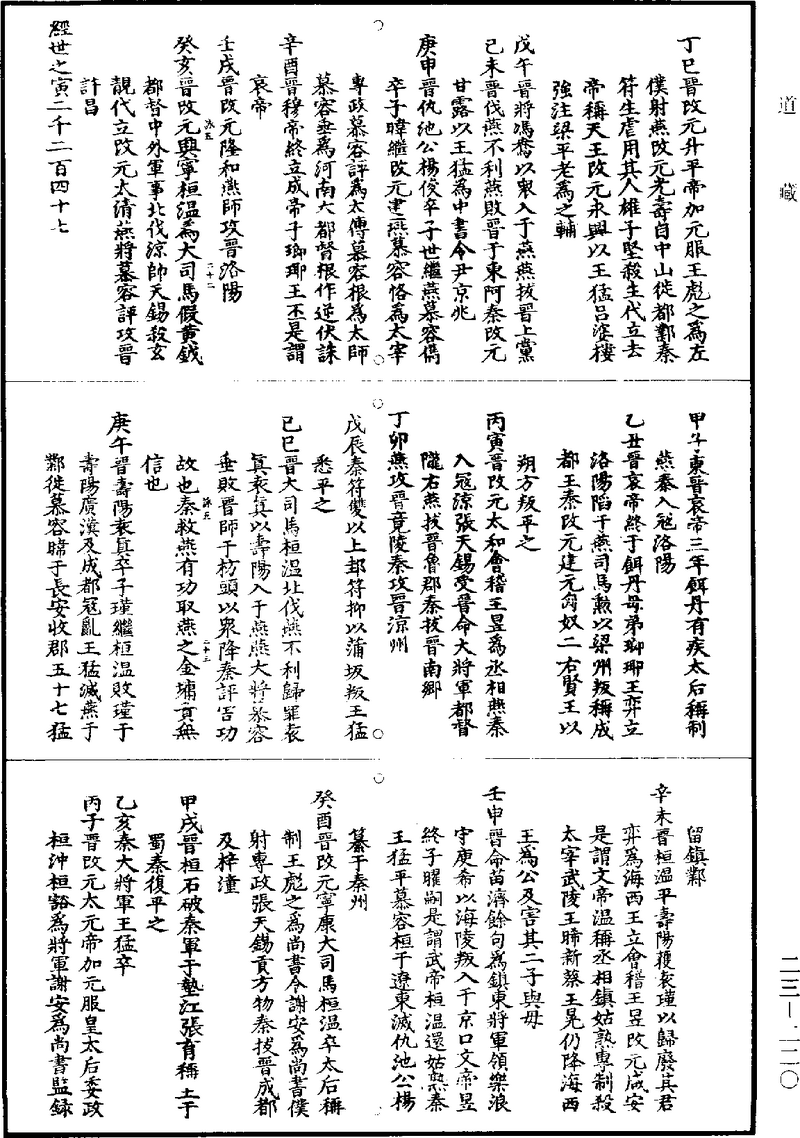 道藏
丁巳晉改元升平帝加元服王彪之為左
僕射燕改元光壽自中山徙都鄴秦
符生虐用其人雄子堅殺生代立去
帝稱天王改元永興以王猛呂婆樓
強汪梁平老為之輔
戊午晉將馮鴦以衆入于燕燕拔晉上黨
己未晉伐燕不利燕敗晉于東阿秦改元
甘露以王猛為中書令尹京兆
庚申晉仇池公楊俊卒子世繼燕慕容儁
卒子暐繼改元建熙慕容恪為太宰
專政慕容評為太傅慕容根為太師
慕容垂為河南大都督根作逆伏誅
辛酉晉穆帝終立成帝子瑯琊王丕是謂
哀帝
壬戌晉改元隆和燕師攻晉洛陽
癸亥晉改元興寧桓溫為大司馬假黃鉞
都督中外軍事北伐涼帥天錫殺玄
靚代立改元太清燕將慕容評攻晉
許昌
經世之寅二千二百四十七
甲子東晉哀帝三年餌丹有疾太后稱制
燕秦入寇洛陽
乙丑晉哀帝終于餌丹母弟瑯琊王弈立
洛陽陷于燕司馬勲以梁州叛稱成
都王秦改元建元匈奴二右賢王以
朔方叛平之
丙寅晉改元太和會稽王昱為丞相燕秦
入寇涼張天錫受晉命大將軍都督
隴右燕拔晉魯郡秦拔晉南鄉
丁卯燕攻晉竟陵秦攻晉涼州
戊辰秦符雙以上邽符抑以蒲坂叛王猛
悉平之
己巳晉大司馬桓溫北伐燕不利歸罪袁
真袁真以壽陽入于燕燕大將慕容
垂敗晉師于枋頭以衆降秦評害功
故也秦救燕有功取燕之金墉責無
信也
庚午晉壽陽袁真卒子瑾繼桓溫敗瑾于
壽陽廣漢及成都寇亂王猛滅燕于
鄴徙慕容暐于長安收郡五十七猛
留鎮鄴
辛未晉桓溫平壽陽獲袁瑾以歸廢其君
弈為海西王立會稽王昱改元咸安
是謂文帝溫稱丞相鎮姑熟專制殺
太宰武陵王晞新蔡王晃仍降海西
王為公及害其二子與母
壬申晉命苗濟餘句為鎮東將軍領樂浪
守庚希以海陵叛入于京口文帝昱
終子曜嗣是謂武帝桓溫還姑熟秦
王猛平慕容桓于遼東滅仇池公楊
纂于秦州
癸酉晉改元寧康大司馬桓溫卒太后稱
制王彪之為尚書令謝安為尚書僕
射專政張天錫貢方物秦拔晉成都
及梓潼
甲戌晉桓石破秦軍于墊江張育稱王于
蜀秦復平之
乙亥秦大將軍王猛卒
丙子晉改元太元帝加元服皇太后委政
桓沖桓豁為將軍謝安為尚書監錄
二三—一二〇